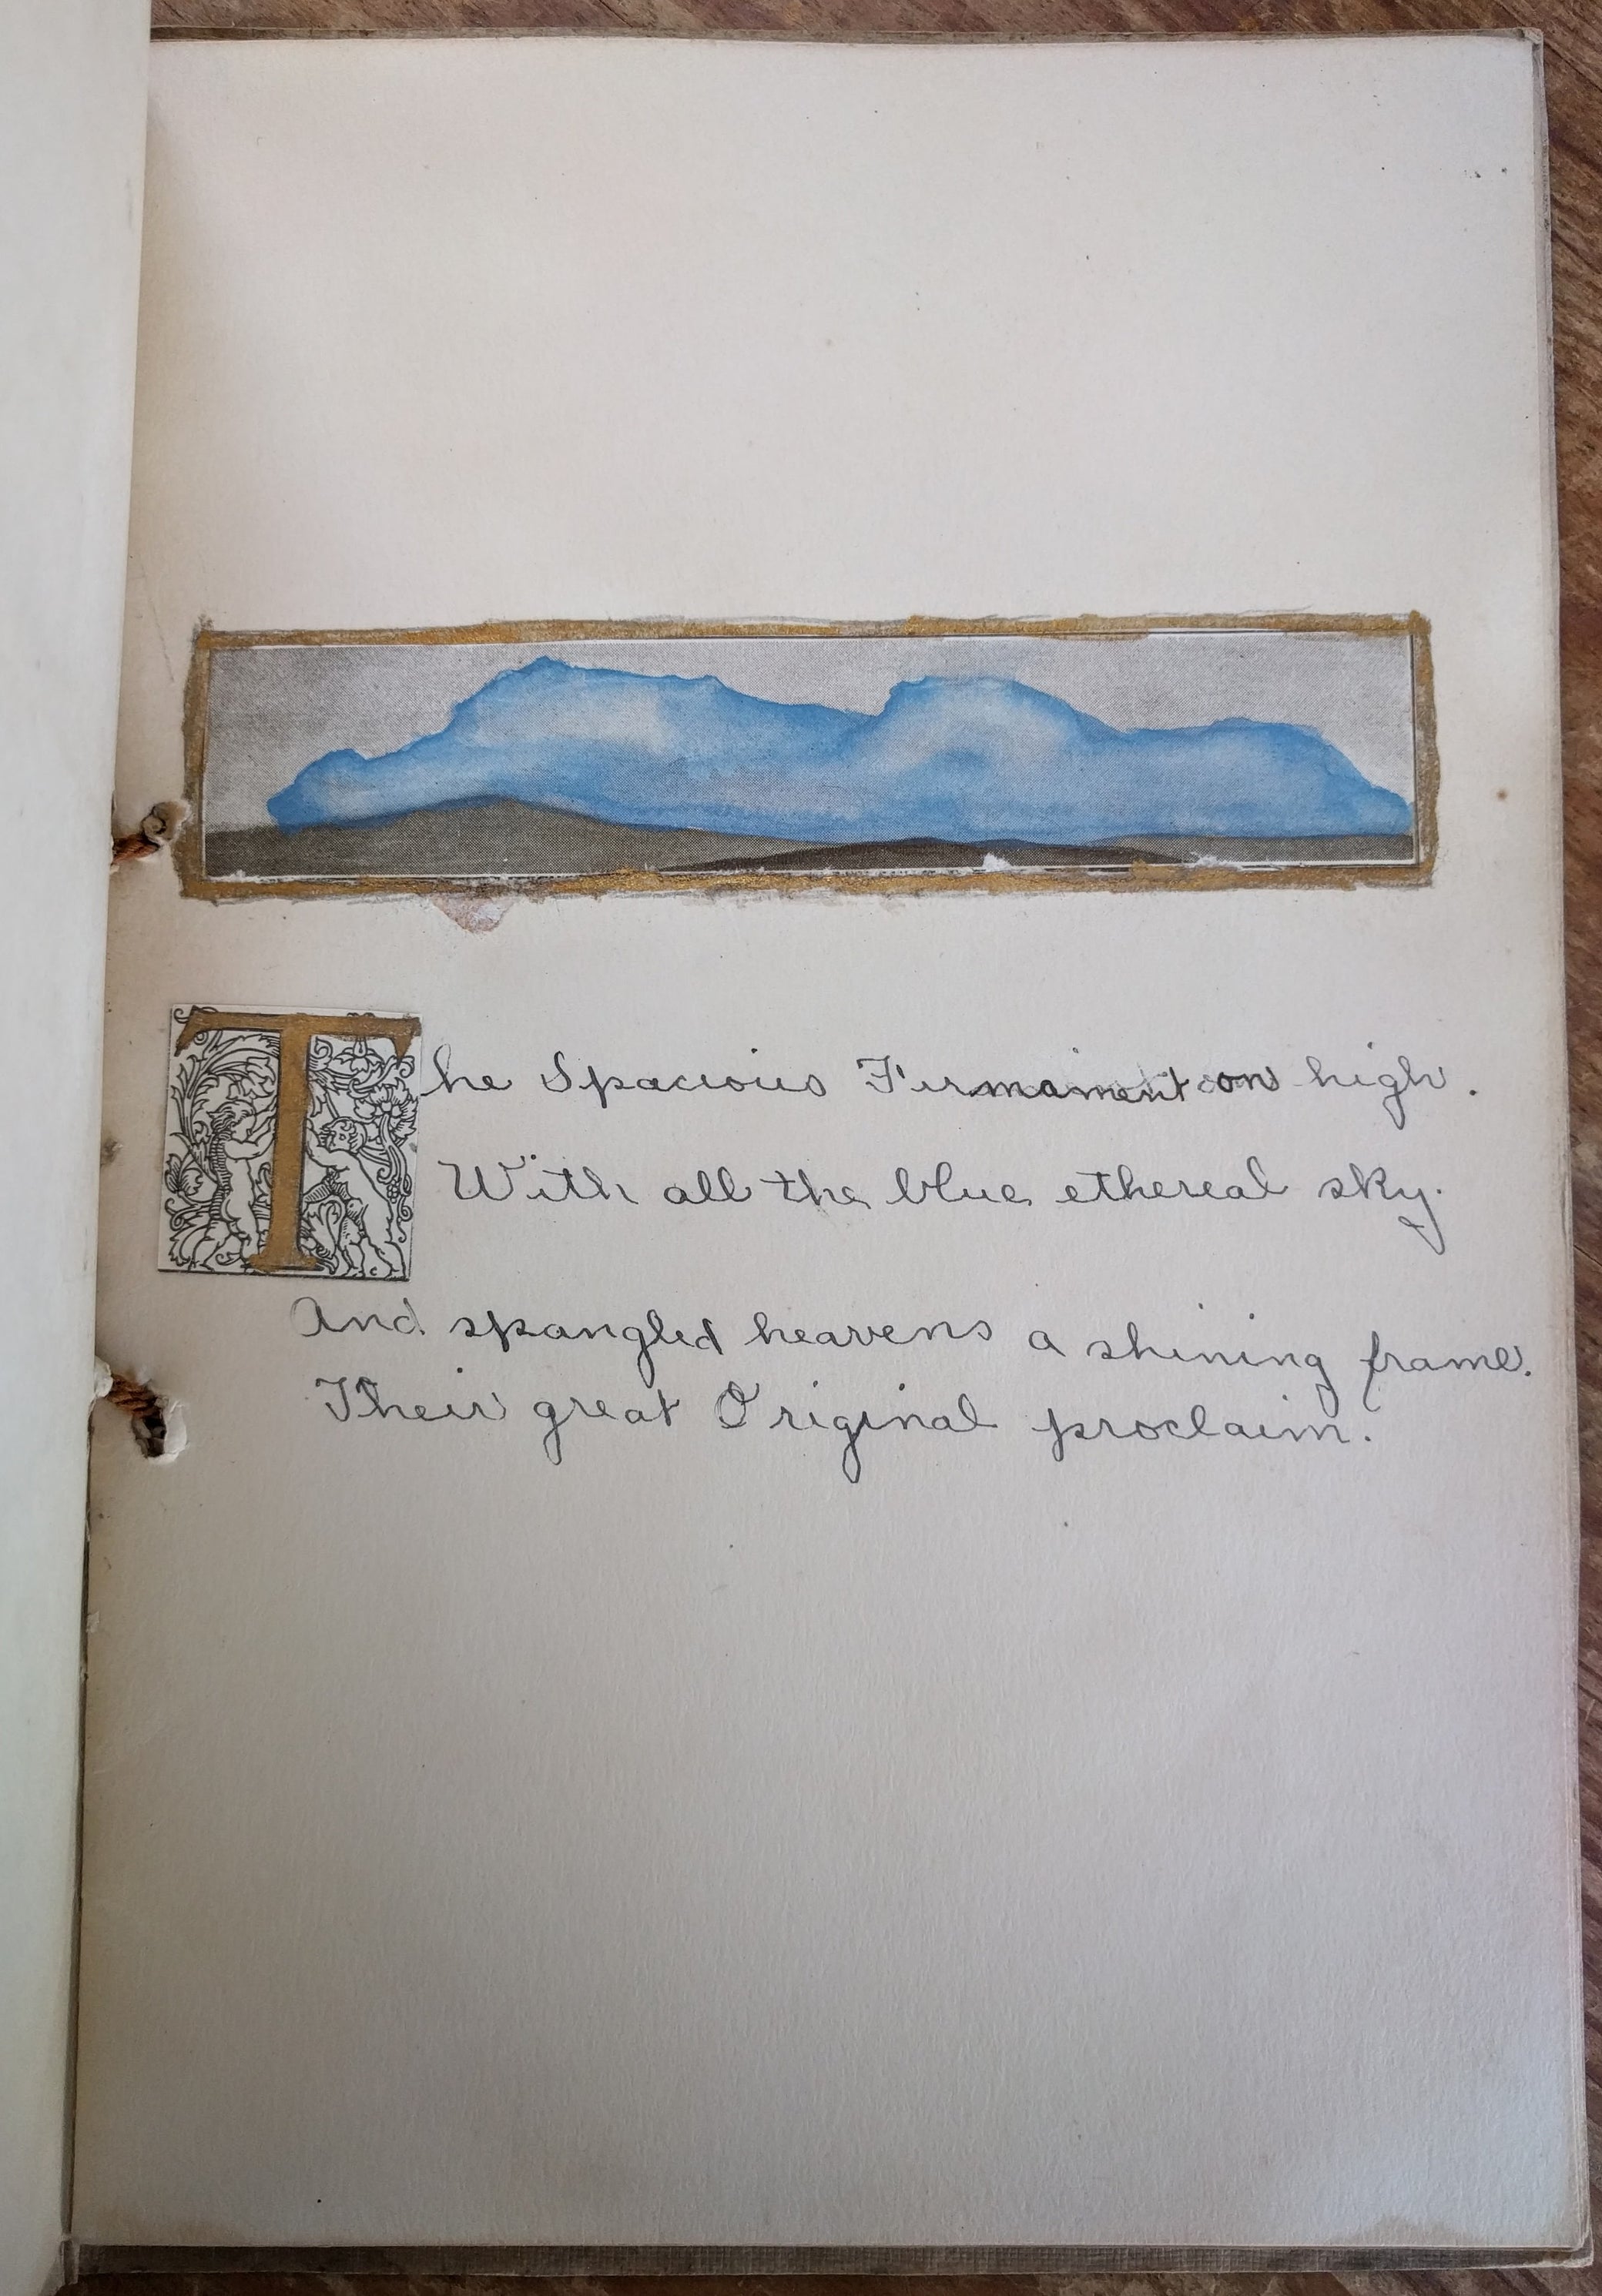 The Spacious Firmament on high.
With all the blue ethereal sky.
And spangled heavens a shining frame.
Their great Original proclaim.